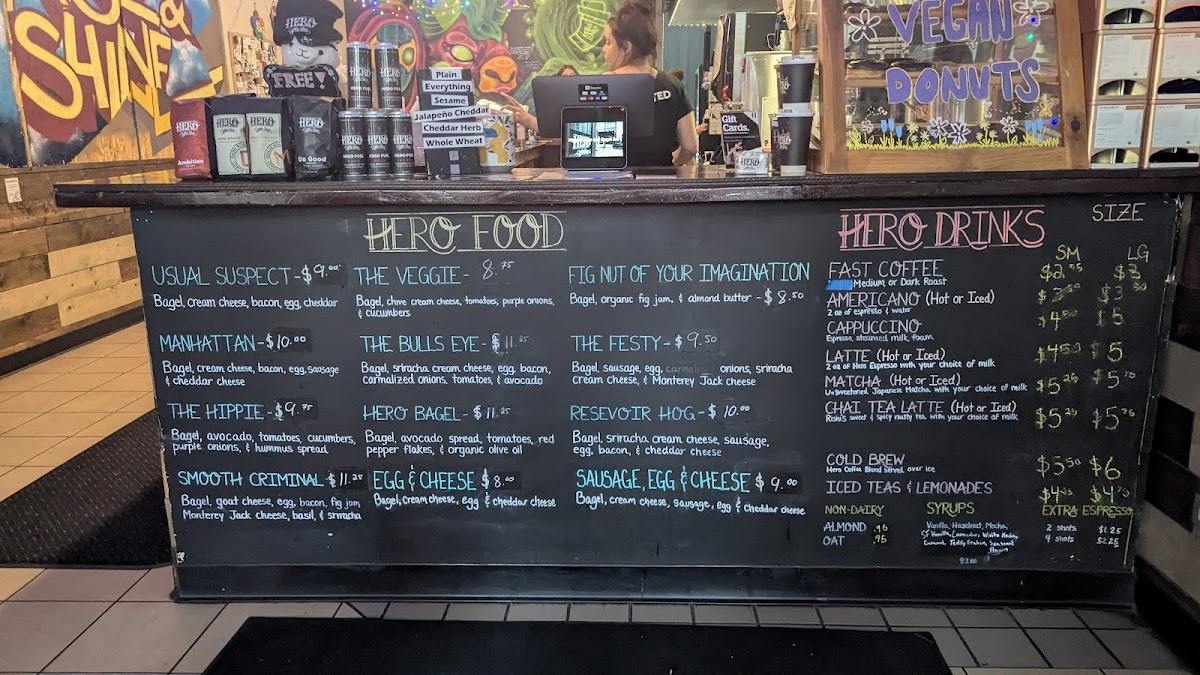 SHINE
HERO
FREE!
HERO
Ambition
HERO
HERO
HERO
Do Good
HERO
HERO
HERO FUEL
HERO FUEL
HERO FUEL
Plain
Everything
Sesame
Jalapeño Cheddar
Cheddar Herb
Whole Wheat
Gift
Cards.
HERO
VEGAN
DONUTS
HERO FOOD
USUAL SUSPECT - $9.00
Bagel, cream cheese, bacon, egg, cheddar
MANHATTAN - $10.00
Bagel, cream cheese, bacon, egg, sausage
& cheddar cheese
THE HIPPIE - $9.75
Bagel, avocado, tomatoes, cucumbers,
purple onions, & hummus spread
SMOOTH CRIMINAL $11.25
Bagel, goat cheese, egg, bacon, fig jam,
Monterey Jack cheese, basil, & sriracha
THE VEGGIE - 8.75
Bagel, chive cream cheese, tomatoes, purple onions,
& cucumbers
THE BULLS EYE - $11.25
Bagel, sriracha cream cheese, egg, bacon,
carmalized onions, tomatoes, & avocado
HERO BAGEL - $11.25
Bagel, avocado spread, tomatoes, red
pepper flakes, & organic olive oil
EGG & CHEESE $8.00
Bagel, cream cheese, egg & cheddar cheese
FIG NUT OF YOUR IMAGINATION
Bagel, organic fig jam, & almond butter - $8.50
THE FESTY - $9.50
Bagel, sausage, egg, carmalized onions, sriracha
cream cheese, & Monterey Jack cheese
RESEVOIR HOG - $10.00
Bagel, sriracha cream cheese, sausage,
egg, bacon, & cheddar cheese
SAUSAGE, EGG & CHEESE $9.00
Bagel, cream cheese, sausage, egg & cheddar cheese
HERO DRINKS
SIZE
SM LG
FAST COFFEE $3
Medium or Dark Roast
AMERICANO (Hot or Iced)
2 oz of espresso & water
CAPPUCCINO $5
Espresso, steamed milk, foam
LATTE (Hot or Iced) $4.50 $5
2 oz of Hero Espresso with your choice of milk
MATCHA (Hot or Iced) $5.25 $5.75
Unsweetened Japanese Matcha with your choice of milk
CHAI TEA LATTE (Hot or Iced) $5.25 $5.75
sweet & spicy milky tea with your choice of milk
COLD BREW $5.50 $6
Hero Coffee Blend served over ice
ICED TEAS & LEMONADES
NON-DAIRY
ALMOND .95
OAT .95
SYRUPS
Vanilla, Hazelnut, Mocha,
EXTRA ESPRESSO
2 shots $1.25
4 shots $2.25